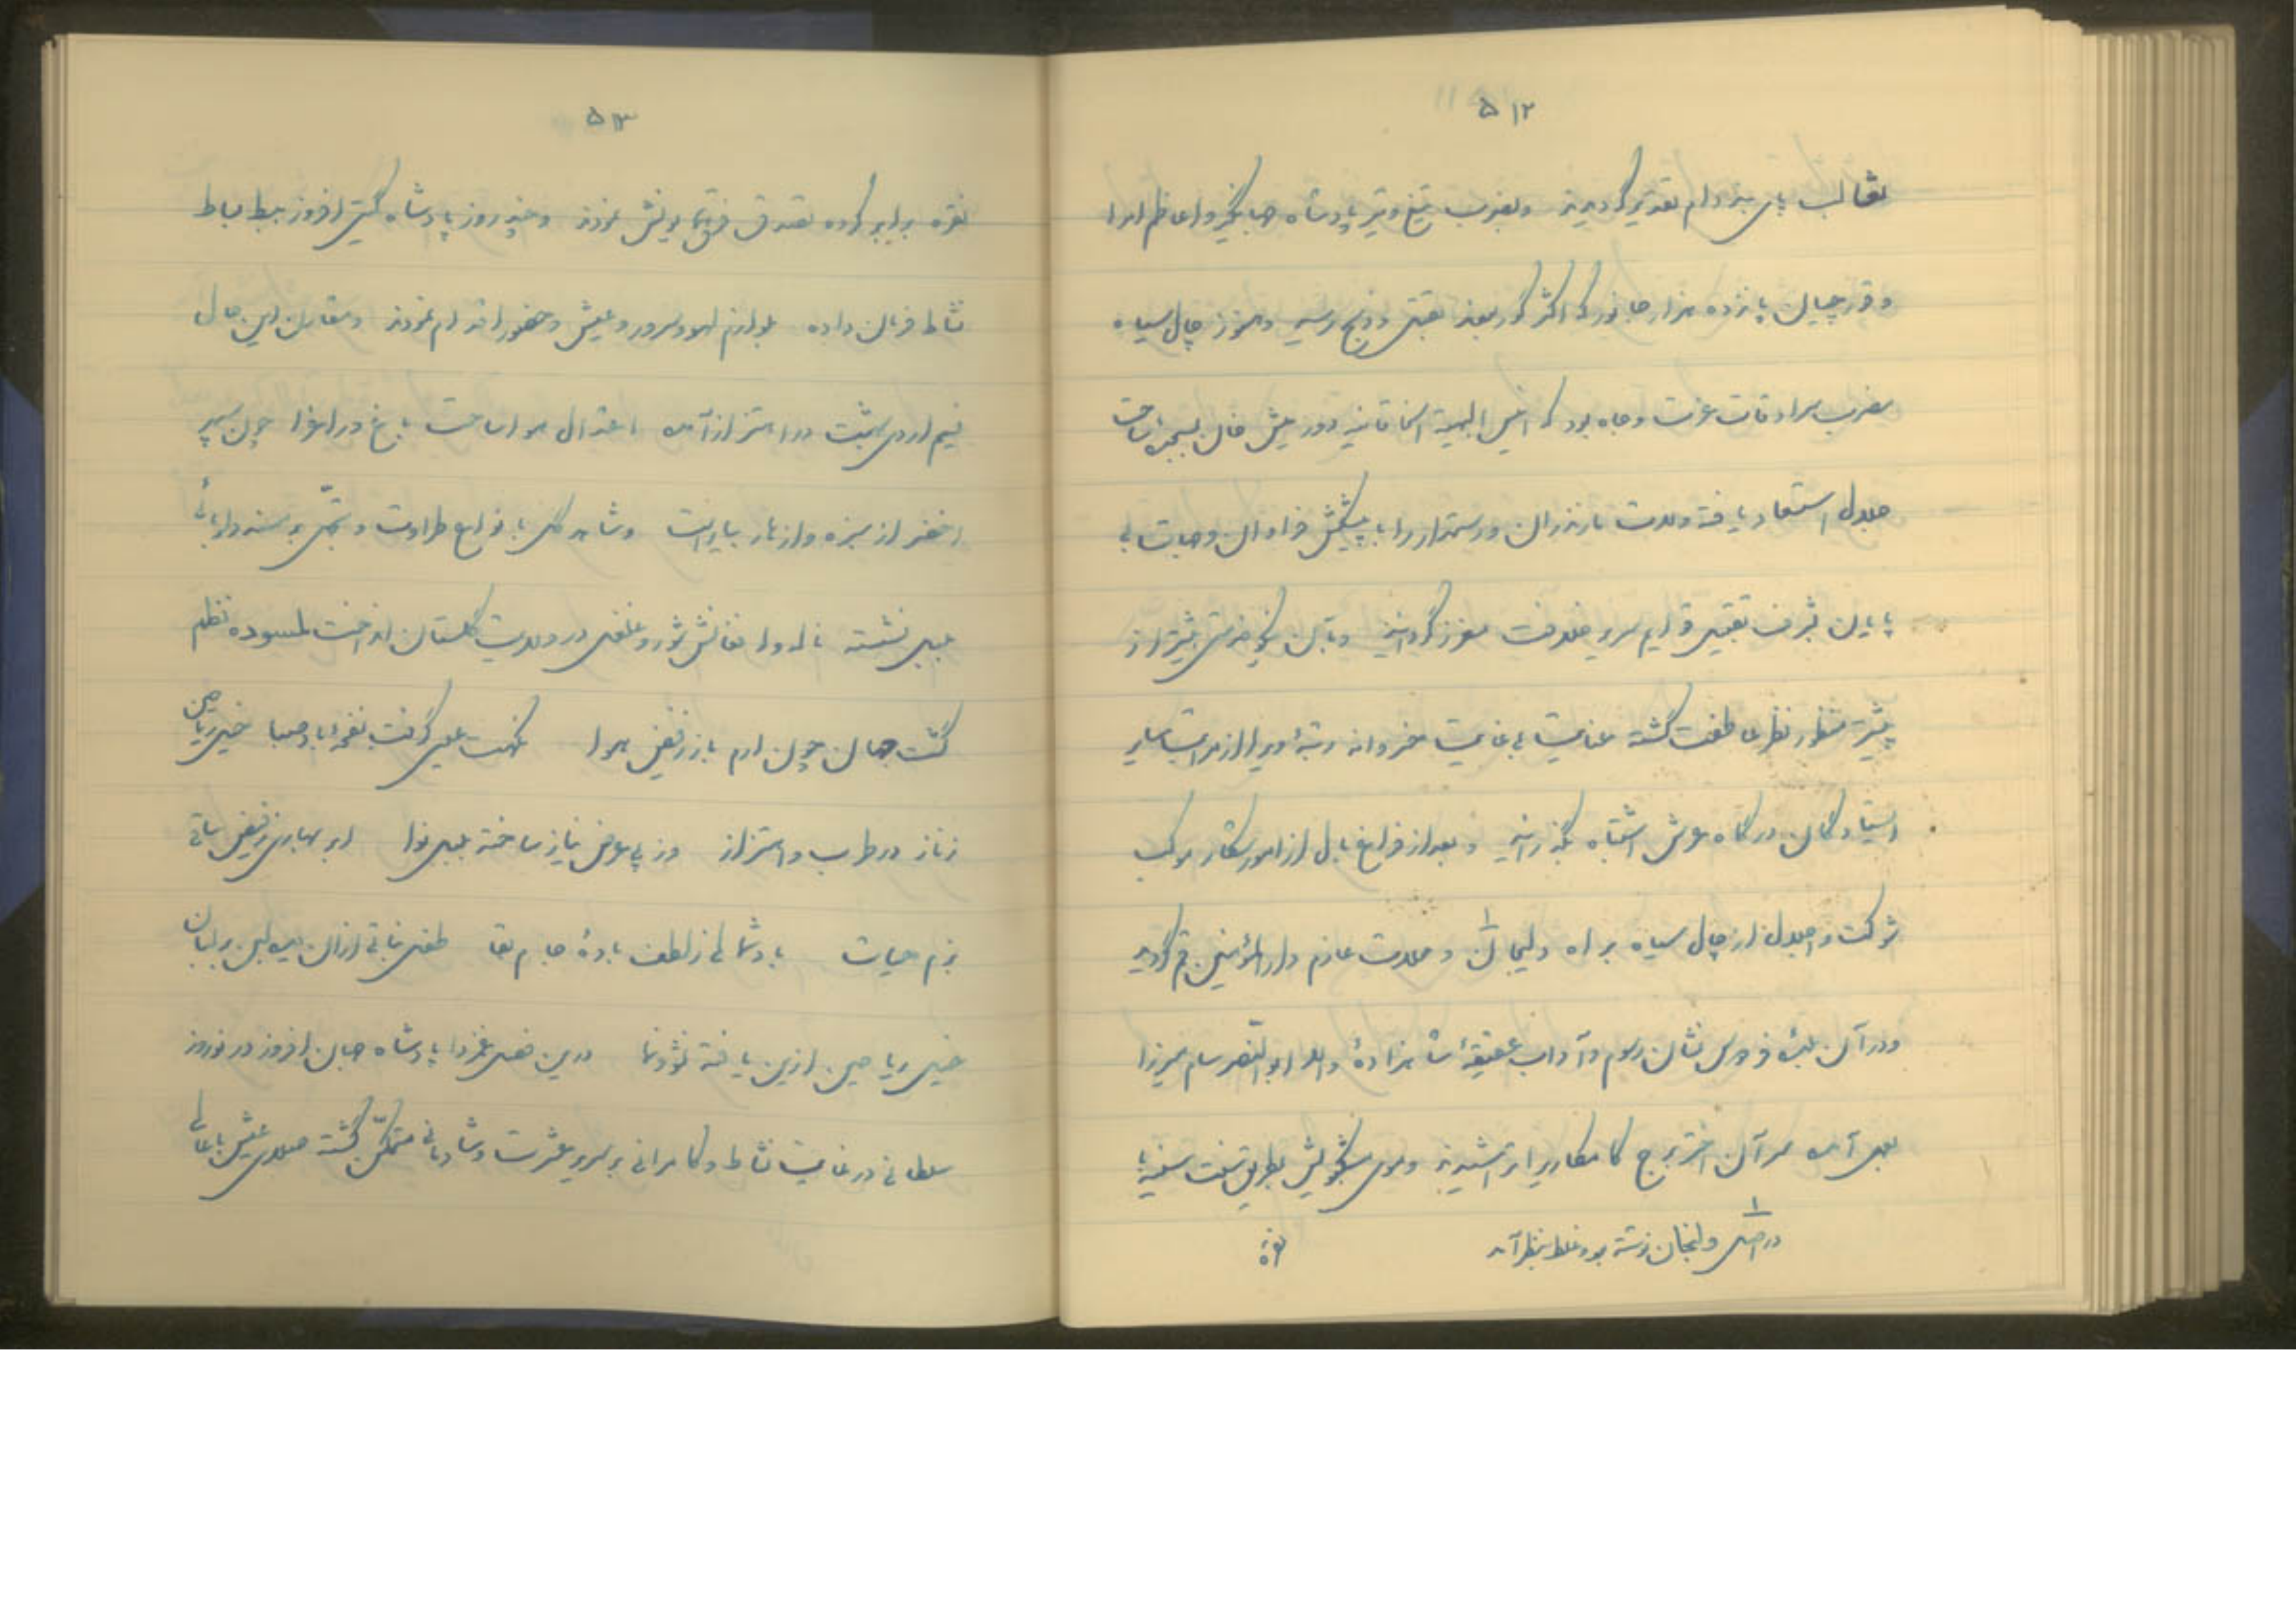 ۵۱۲
ثعالب پای بند دام تقدیر گردیدند و بضرب تیغ و تیر پادشاه جهانگیر و اعاظم امرا
و قورچیان پانزده هزار جانور که اکثر گور بودند بقتل و ذبح رسید و هنوز چال سیاه
مضرب سرادقات عزت و جاه بود که انیس الحضرة الخاقانیه دورمیش خان بسجده ساحت
جلال استسعاد یافته ولات مازندران و رستمدار را با پیشکش فراوان و جهات بی
پایان بشرف تقبیل قوایم سریر خلافت معزز گردانید و بآن نیکو خدمتی بیشتر از
پیشتر منظور نظر عاطفت گشته عنایت بی غایت خسروانه رتبهٔ ویرا از مراتب سایر
ایستادگان درگاه عرش اشتباه بگذرانید و بعد از فراغ بال از امور شکار موکب
شوکت و اجلال از چال سیاه براه دلیجان و محلات عازم دارالمؤمنین قم گردید
و در آن بلدهٔ فردوس نشان رسوم و آداب عقیقهٔ شاهزادهٔ والا ابوالنصر سام میرزا
بعمل آمده سر آن اختر برج کامکاری را تراشیدند و موی مشکبویش بطریق سنت سنیه با
۱ در اصل ولنجان نوشته بود غلط بنظر آمد
نقره
۵۱۳
نقره برابر کرده تصدق فرق همایونش نمودند و چند روز پادشاه گیتی افروز ببسط بساط
نشاط فرمان داده بلوازم لهو و سرور و عیش و حضور اقدام نمودند و مقارن این حال
نسیم اردی بهشت در اهتزاز آمده اعتدال هوا ساحت باغ و راغ را چون سپهر
اخضر از سبزه و ازهار بیاراست و شاهد گل با انواع طراوت و تجمل بر مسند دلربائی
بلبل نشسته ناله و افغانش شور و غلغل در ولایت گلستان انداخت لمسوده نظم
گشت جهان چون ارم باز ز فیض هوا نکهت عیسی گرفت نفحهٔ باد صبا خیل ریاحین
ز ناز در طرب و اهتزاز وز پی عرض نیاز ساخته بلبل نوا ابر بهاری ز فیض ساقی
بزم حیات باد شمالی ز لطف بادهٔ جام بقا طفل نباتی از آن میده لبن بر لبان
خیل ریاحین ازین یافته نشو و نما درین فصل غمزدا پادشاه جهان افروز در نوروز
سلطانی در غایت نشاط و کامرانی بر سریر عشرت و شادمانی متمکن گشته صلای عیش باعالی